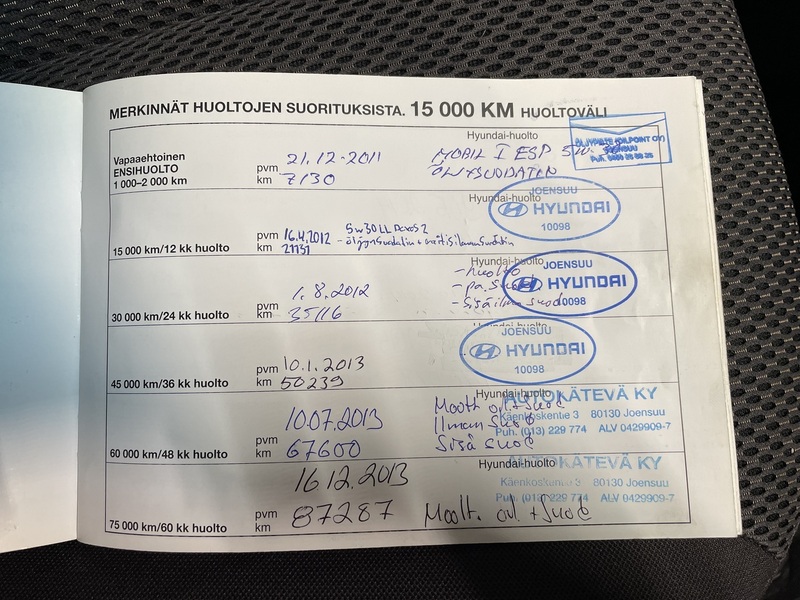 MERKINNÄT HUOLTOJEN SUORITUKSISTA. 15 000 KM HUOLTOVÄLI
Hyundai-huolto
Vapaaehtoinen
ENSIHUOLTO
1 000–2 000 km
pvm 21.12.2011
km 7130
MOBIL 1 ESP
ÖLJYNSUODATIN
(OILPOINT OY)
JOENSUU
15 000 km/12 kk huolto
pvm 16.4.2012
km
5w30LL
Hyundai-huolto
JOENSUU
HYUNDAI
10098
30 000 km/24 kk huolto
pvm 1.8.2012
km 35116
Hyundai-huolto
-huolto
JOENSUU
HYUNDAI
10098
45 000 km/36 kk huolto
pvm 10.1.2013
km 50239
Hyundai-huolto
JOENSUU
HYUNDAI
10098
60 000 km/48 kk huolto
pvm 10.07.2013
km 67600
Hyundai-huolto
Ilman suod
Sisä suod
AUTOKÄTEVÄ KY
Käenkoskentie 3 80130 Joensuu
Puh. (013) 229 774 ALV 0429909-7
75 000 km/60 kk huolto
pvm 16.12.2013
km 87287
Hyundai-huolto
+ Suod
AUTOKÄTEVÄ KY
Käenkoskentie 3 80130 Joensuu
Puh. (013) 229 774 ALV 0429909-7